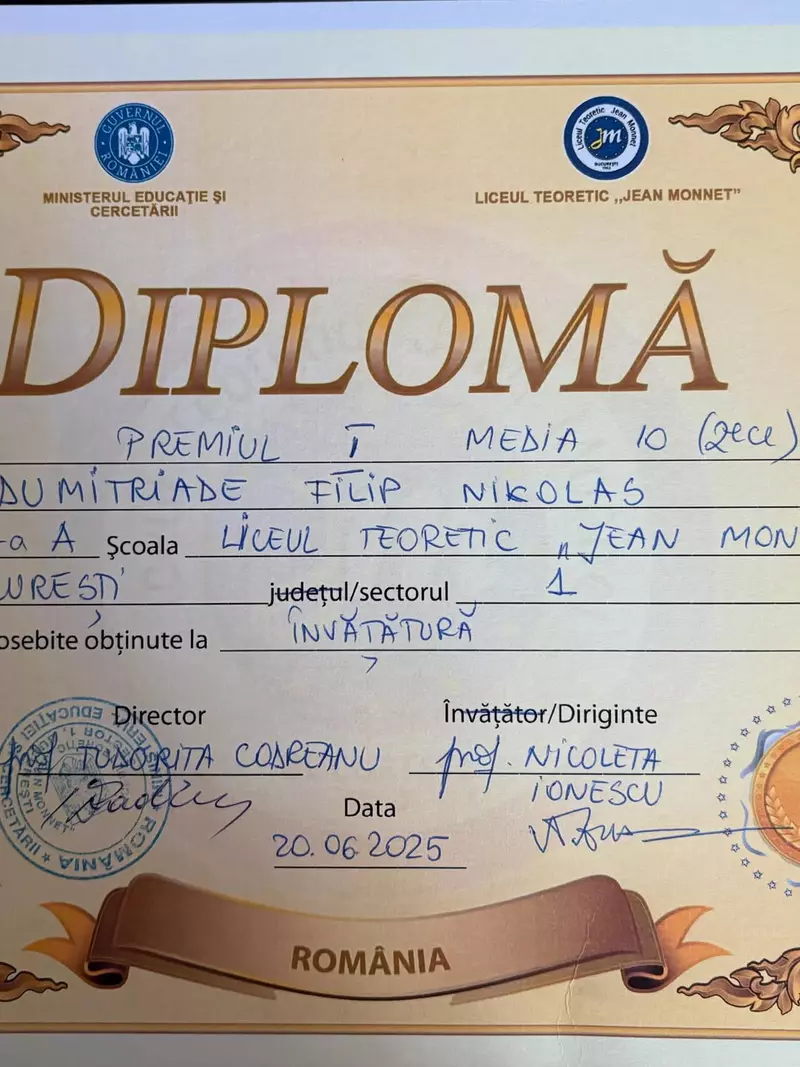 GUVERNUL ROMÂNIEI
MINISTERUL EDUCAŢIE ŞI
CERCETĂRII
Liceul Teoretic Jean Monnet
jm
BUCUREŞTI
LICEUL TEORETIC „JEAN MONNET”
DIPLOMĂ
PREMIUL I MEDIA 10 (zece)
DUMITRIADE FILIP NIKOLAS
-a A Şcoala LICEUL TEORETIC „JEAN MON
UREȘTI județul/sectorul 1
osebite obținute la ÎNVĂȚĂTURĂ
Director Învățător/Diriginte
prof. TUDORITA CODREANU prof. NICOLETA
IONESCU
Data
20.06.2025
ROMÂNIA
ROMÂNIA